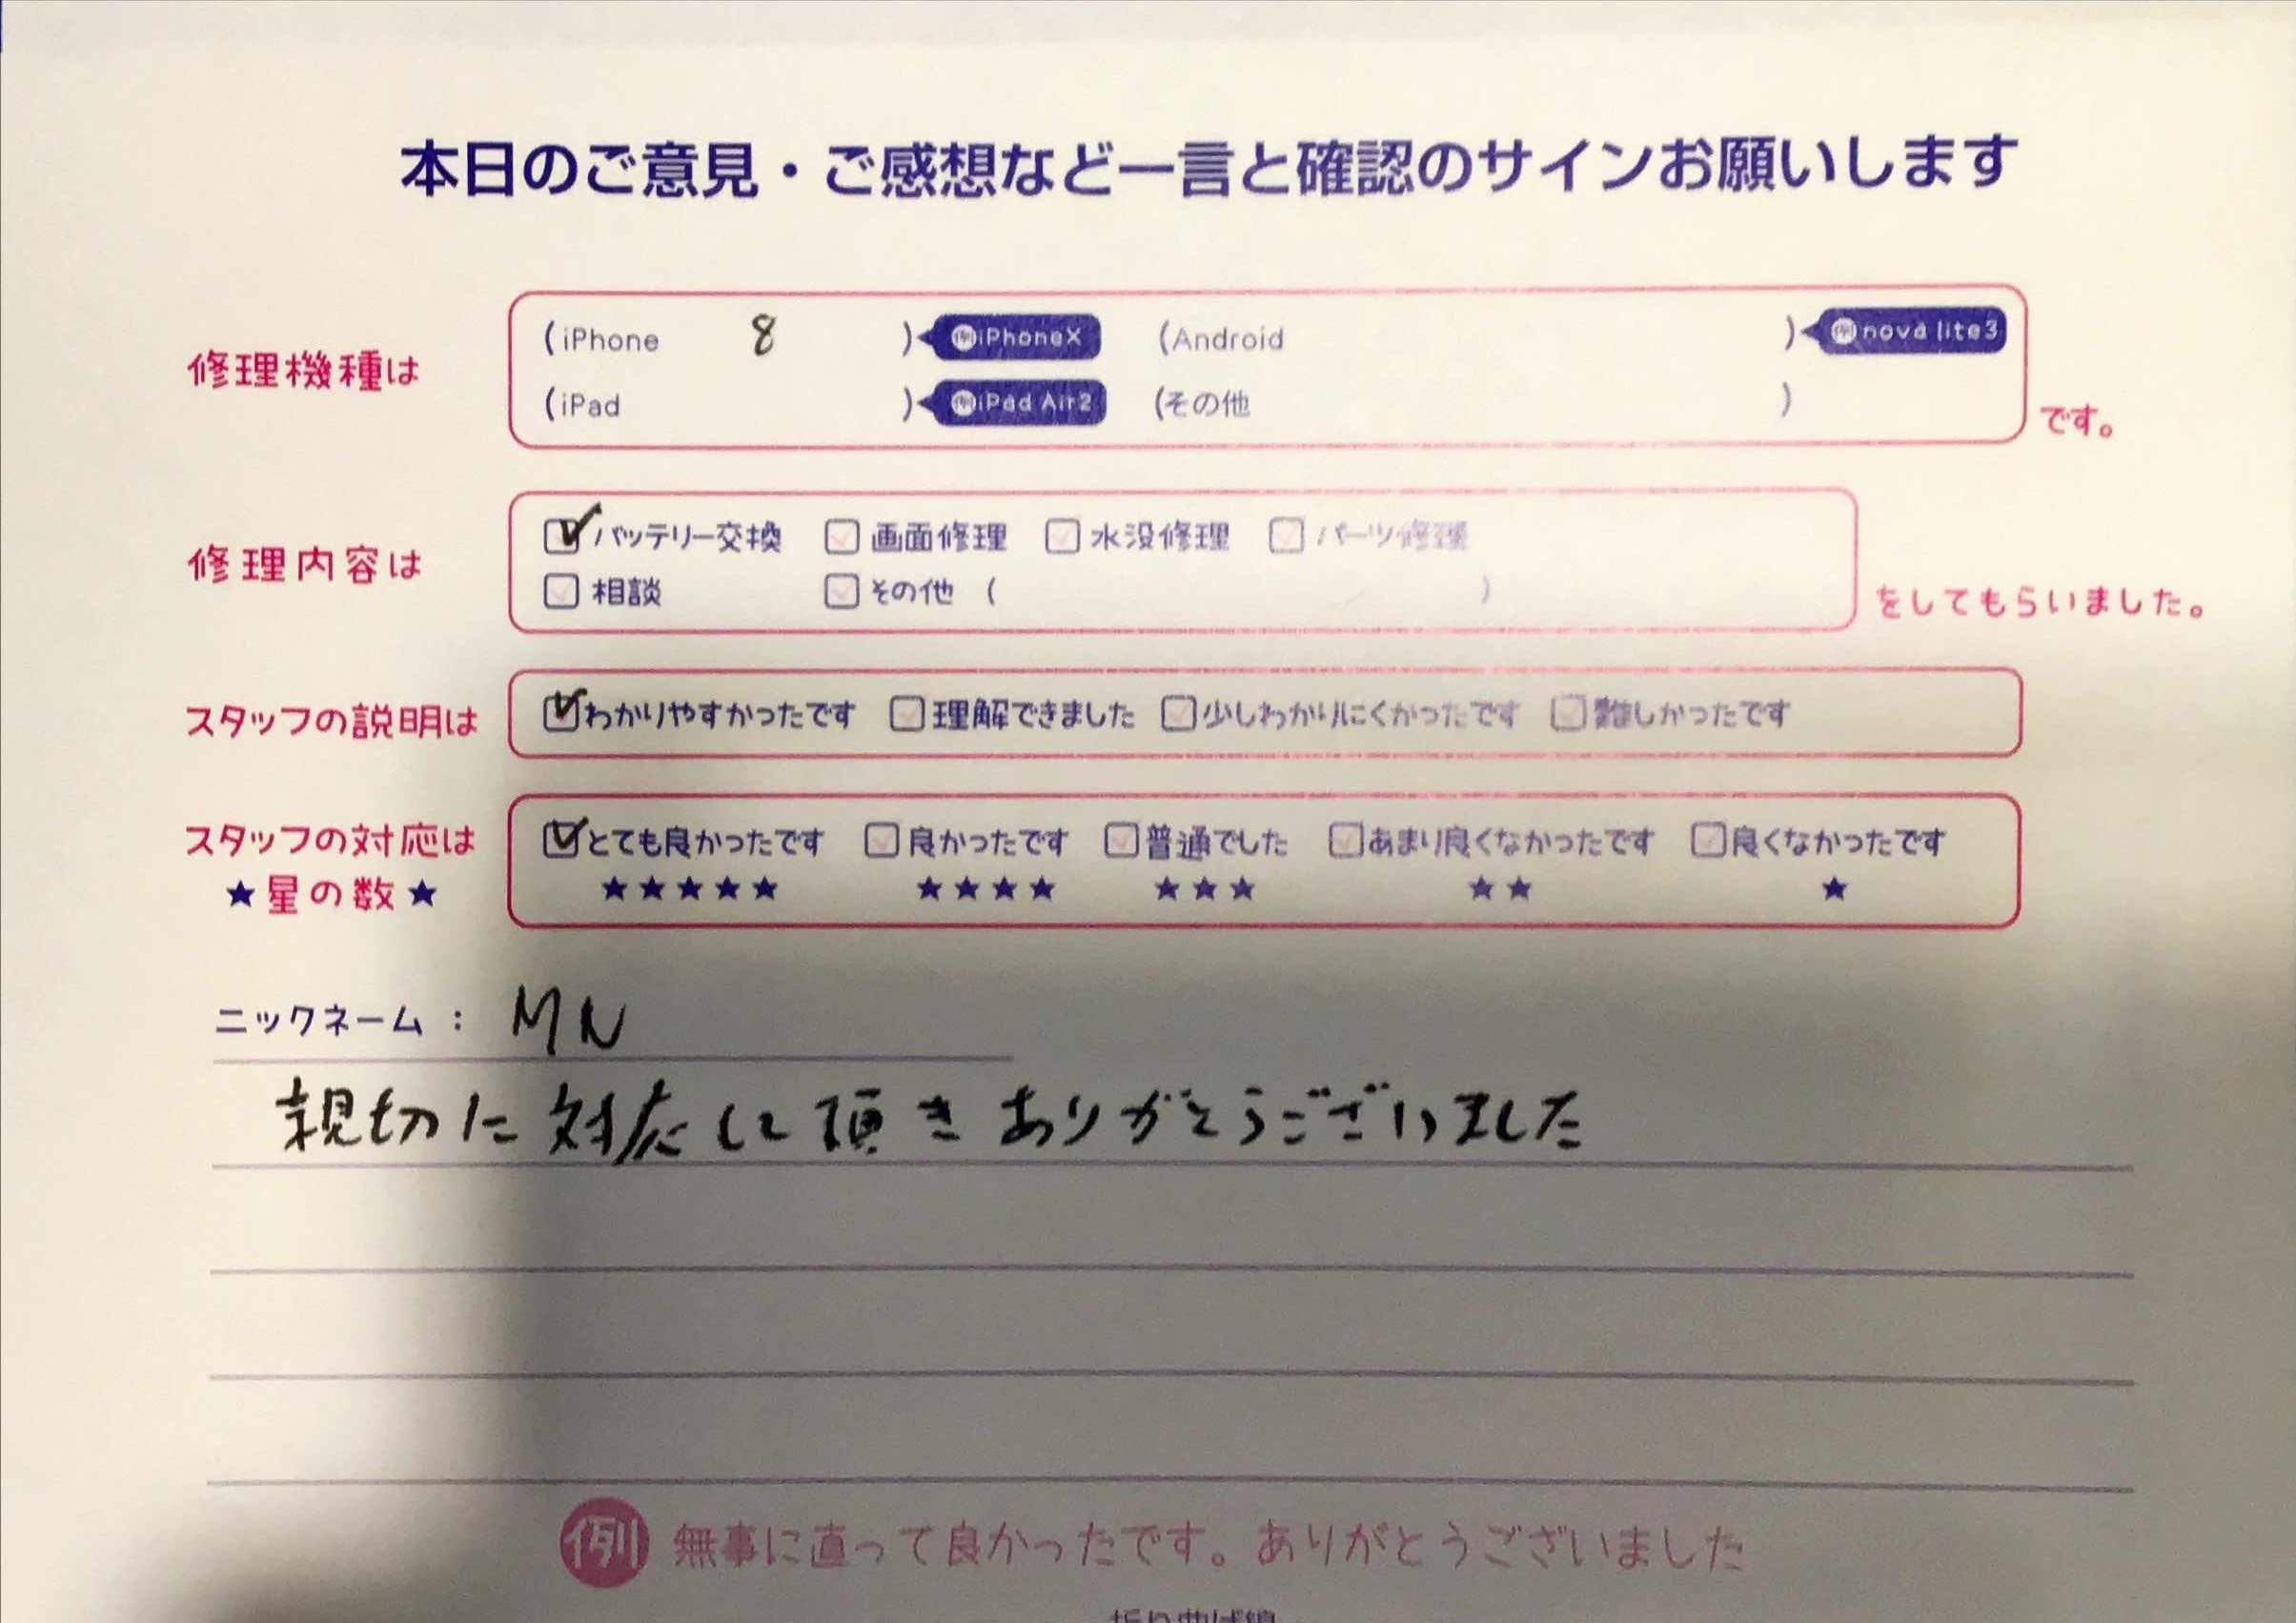 本日のご意見・ご感想など一言と確認のサインお願いします
修理機種は
(iPhone 8 ) 例iPhoneX (Android ) 例nova lite3
(iPad ) 例iPad Air2 (その他 )
です。
修理内容は
バッテリー交換 画面修理 水没修理 パーツ修理
相談 その他 ( )
をしてもらいました。
スタッフの説明は
わかりやすかったです 理解できました 少しわかりにくかったです 難しかったです
スタッフの対応は
★星の数★
とても良かったです 良かったです 普通でした あまり良くなかったです 良くなかったです
★★★★★ ★★★★ ★★★ ★★ ★
ニックネーム： MN
親切に対応して頂きありがとうございました
例 無事に直って良かったです。ありがとうございました